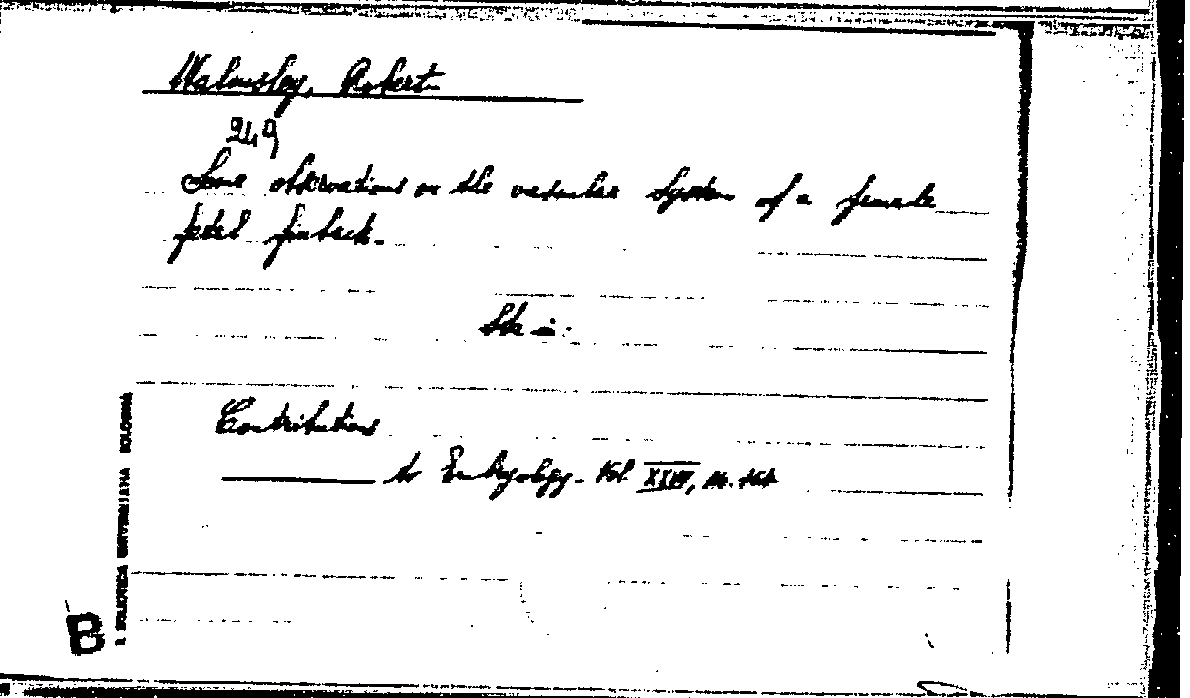 Walmsley, Robert
249
Some observations on the vascular system of a female
fetal finback.
Sta in:
Contributions
to Embryology. Vol XXVII,
R. BIBLIOTECA UNIVERSITARIA BOLOGNA
B